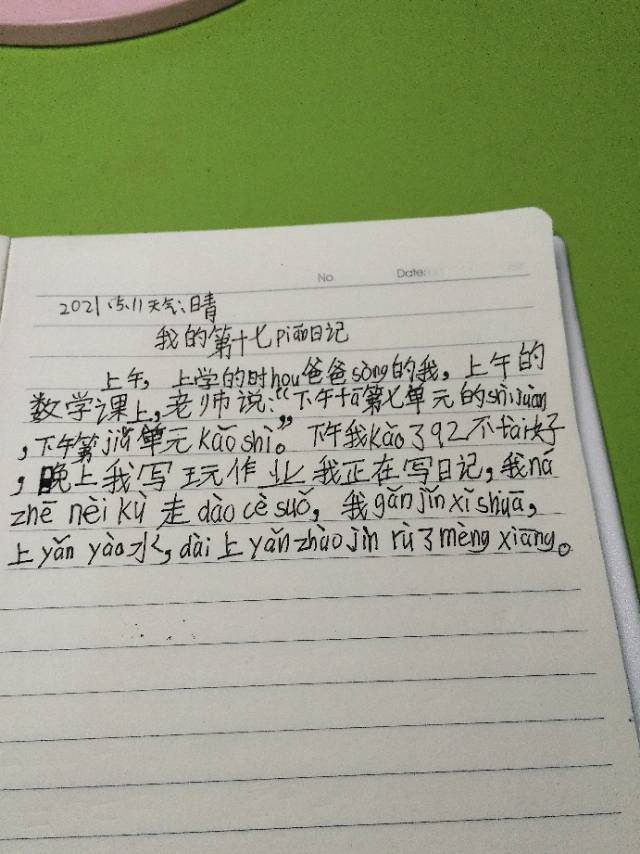 No. Date:
2021.5.11天气:晴
我的第十七piān日记
上午,上学的时hou爸爸sòng的我,上午的
数学课上,老师说:“下午fā第七单元的shìjuàn
,下午第jiǔ单元kǎoshì。”下午我kǎo了92不tài好
,晚上我写玩作业我正在写日记,我ná
zhē nèi kù 走dào cè suǒ,我gǎn jǐn xǐ shuā,
上yǎn yào水,dài上yǎn zhào jìn rù了mèng xiāng。